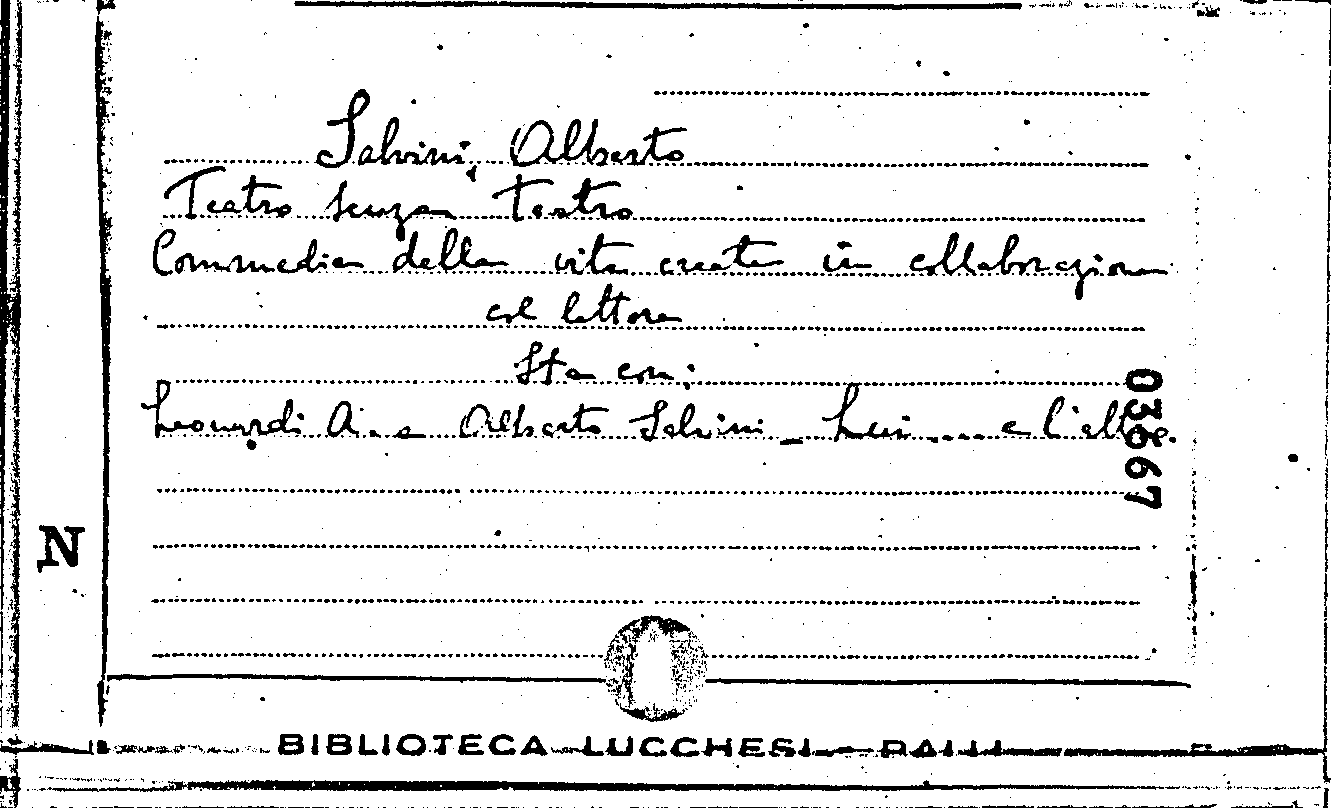 Salvini, Alberto
Teatro senza teatro
Commedia della vita creata in collaborazione
col lettore
Sta con:
Leonardi A. e Alberto Salvini _ Lui .... e l'altro.
03667
N
BIBLIOTECA LUCCHESI - PALLI